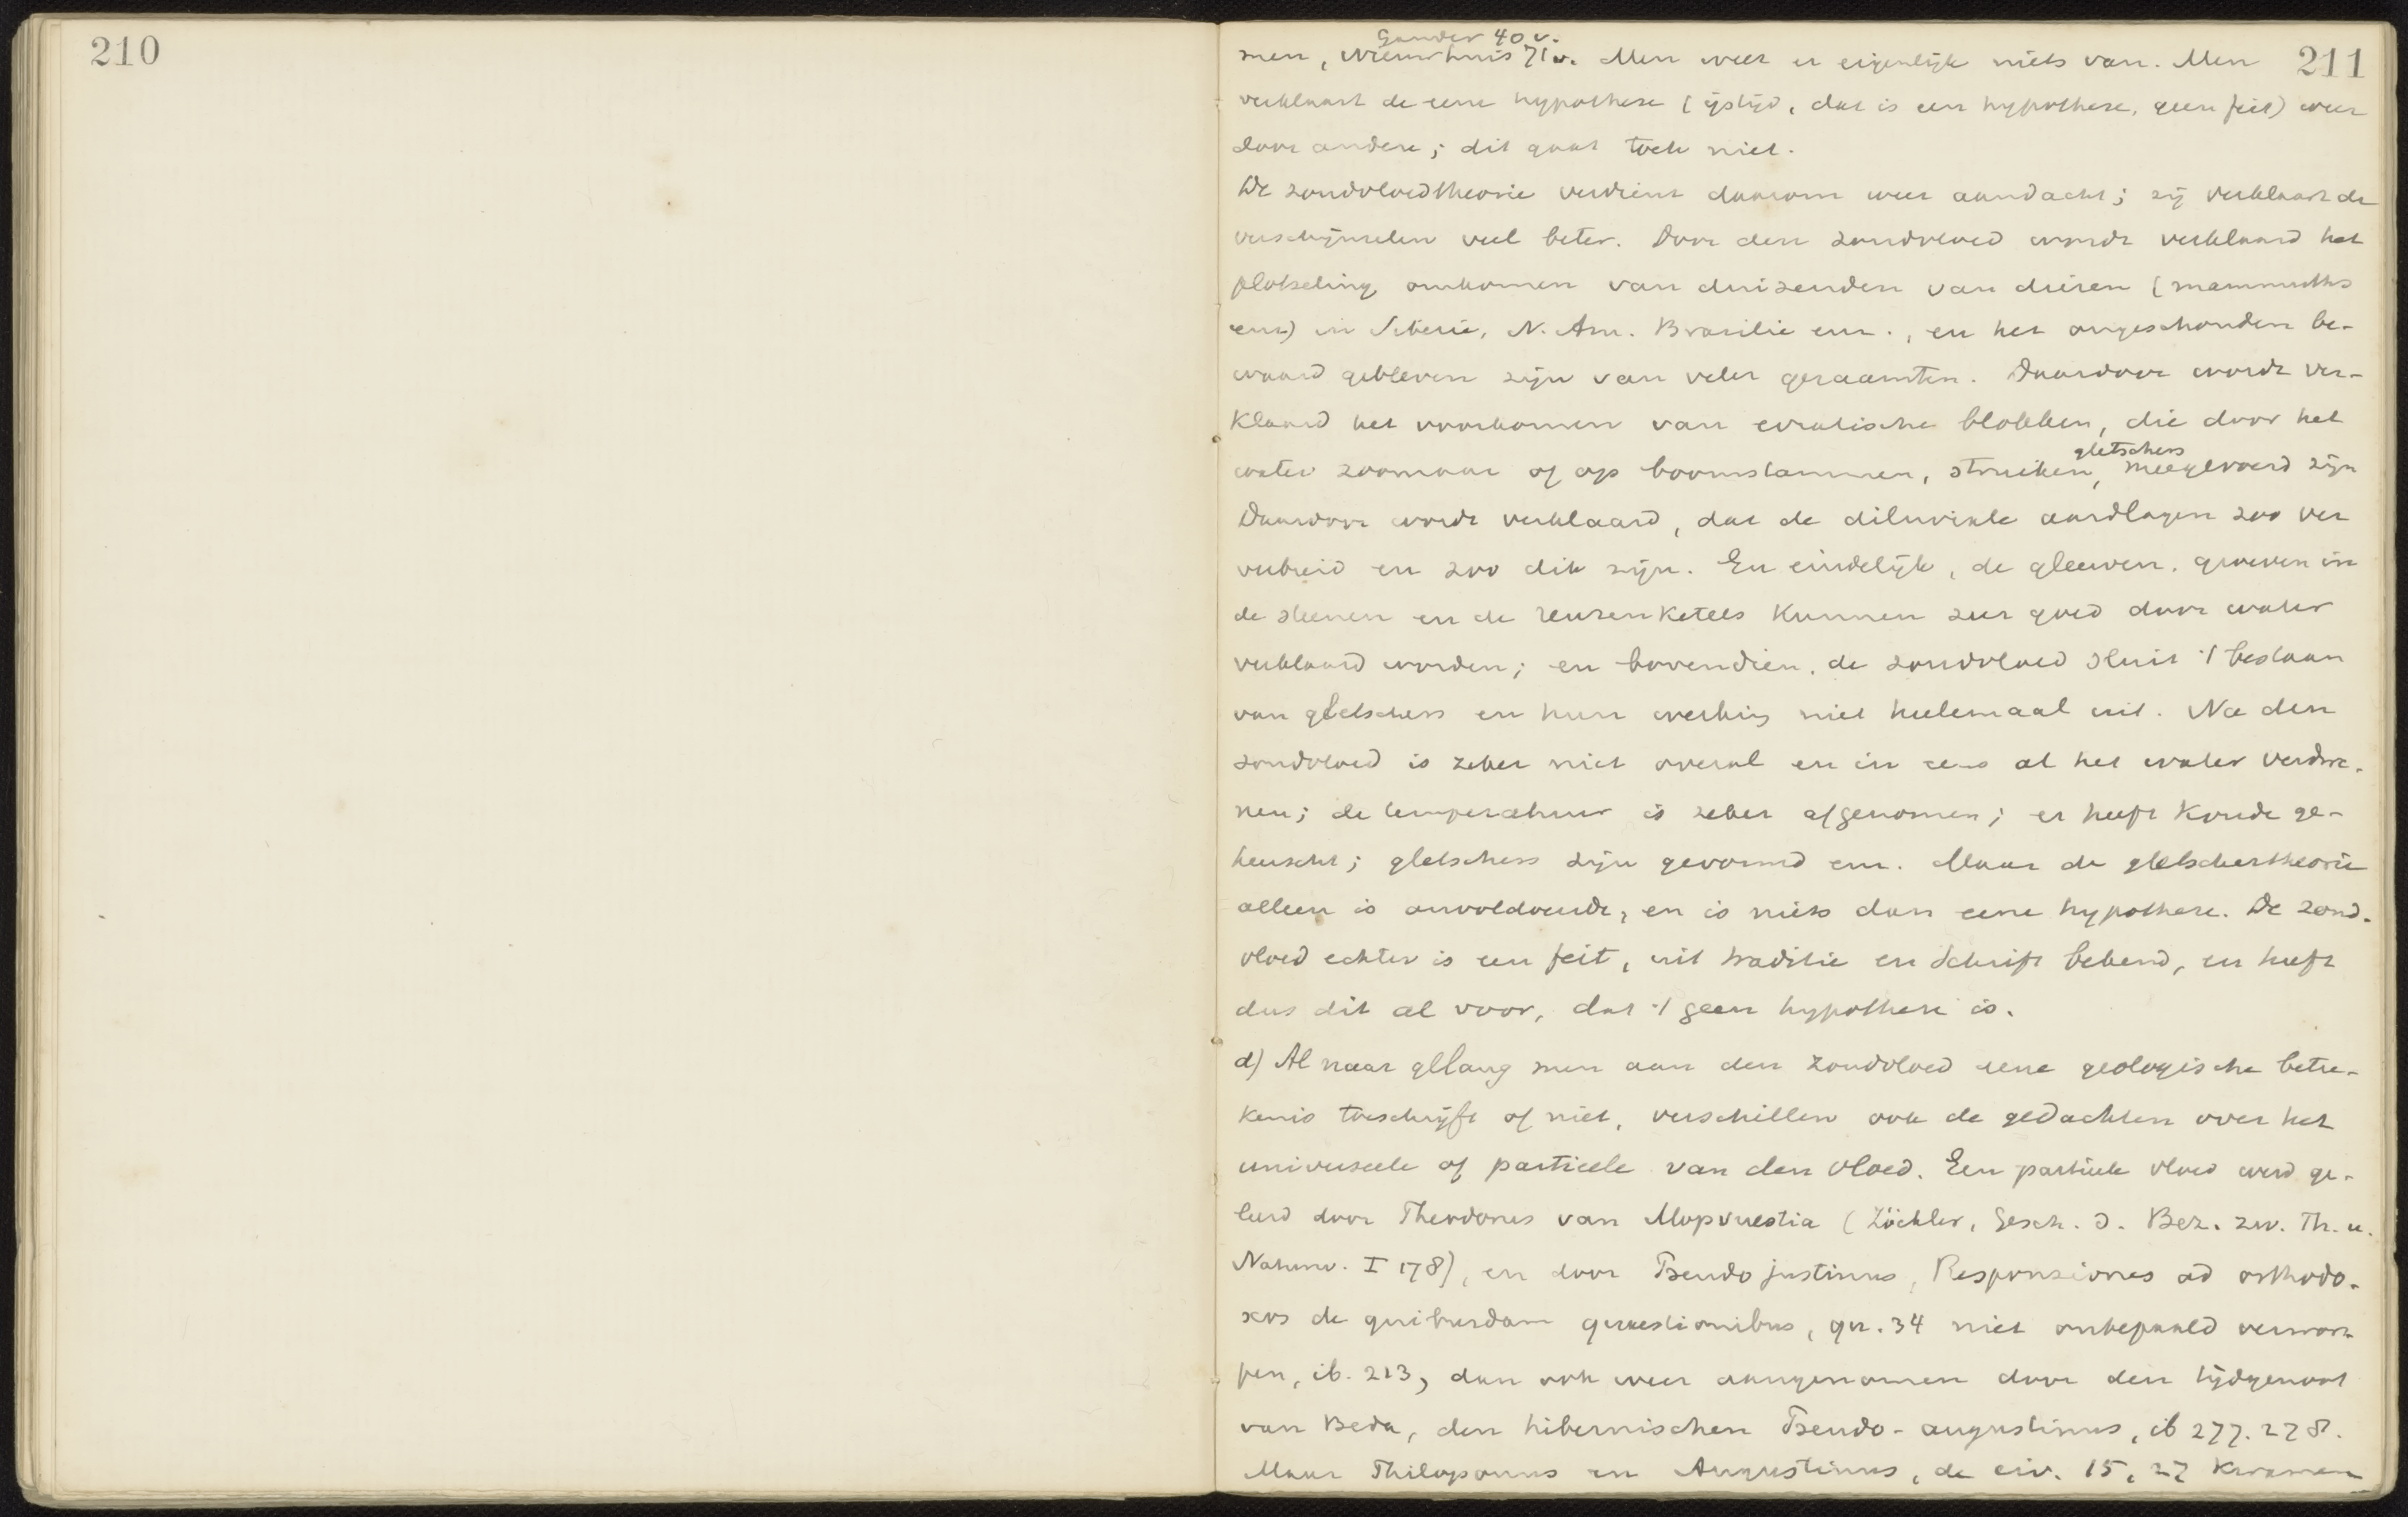 210
211
Gander 40 v.
men, Nieuwhuis 71 v. Men weet er eigenlijk niets van. Men
verklaart de eene hypothese (ijstijd, dat is een hypothese, geen feit) weer
door andere; dit gaat toch niet.
De zondvloedtheorie verdient daarom weer aandacht; zij verklaart de
verschijnselen veel beter. Door den zondvloed wordt verklaard het
plotseling omkomen van duizenden van dieren (mammuths
enz) in Siberië, N. Am. Brazilie enz., en het ongeschonden be-
waard gebleven zijn van veler geraamten. Daardoor wordt ver-
klaard het voorkomen van erratische blokken, die door het
gletschers
water zoomaar of op boomstammen, struiken, meegevoerd zijn
Daardoor wordt verklaard, dat de diluviale aardlagen zoo ver
verbreid en zoo dik zijn. En eindelijk, de gleuven, groeven in
de steenen en de reuzenketels kunnen zeer goed door water
verklaard worden; en bovendien, de zondvloed sluit 't bestaan
van gletschers en hun werking niet heelemaal uit. Na den
zondvloed is zeker niet overal en in eens al het water verdwe-
nen; de temperatuur is zeker afgenomen; er heeft koude ge-
heerscht; gletschers zijn gevormd enz. Maar de gletschertheorie
alleen is onvoldoende, en is niets dan eene hypothese. De zond-
vloed echter is een feit, uit traditie en Schrift bekend, en heeft
dus dit al voor, dat 't geen hypothese is.
d) Al naar gelang men aan den zondvloed eene geologische betee-
kenis toeschrijft of niet, verschillen ook de gedachten over het
universeele of partieele van den vloed. Een partieele vloed werd ge-
leerd door Theodorus van Mopvuestia (Zöckler, Gesch. d. Bez. zw. Th. u.
Naturw. I 178), en door Pseudo justinus, Responsiones ad orthodo-
xos de quibusdam quaestionibus, qu. 34 niet onbepaald verwor-
pen, ib. 213, dan ook weer aangenomen door den tijdgenoot
van Beda, den hibernischen Pseudo-augustinus, ib 277. 278.
Maar Philoponus en Augustinus, de civ. 15, 27 kwamen